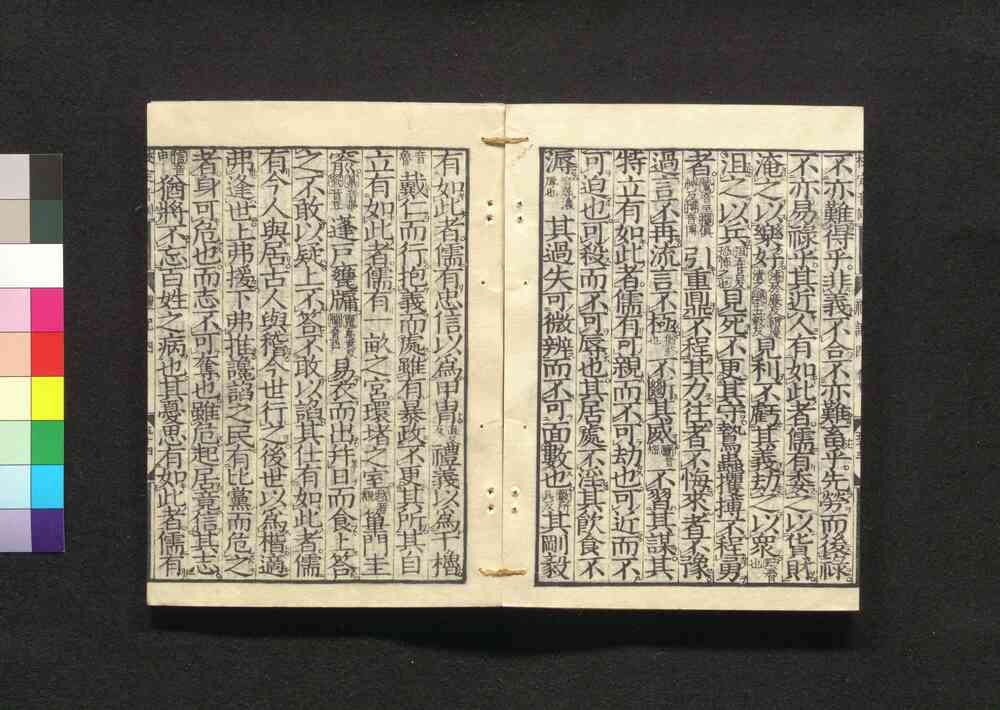 不亦難得乎非義不合不亦難畜乎先勞而後祿
不亦易祿乎其近人有如此者儒有委之以貨財
淹之以樂好見利不虧其義劫之以衆
沮之以兵見死不更其守鷙蟲攫搏不程勇
者引重鼎不程其力往者不悔來者不豫
過言不再流言不極不斷其威不習其謀其
特立有如此者儒有可親而不可劫也可近而不
可迫也可殺而不可辱也其居處不淫其飲食不
溽其過失可微辨而不可面數也其剛毅
有如此者儒有忠信以爲甲胄禮義以爲干櫓
戴仁而行抱義而處雖有暴政不更其所其自
立有如此者儒有一畝之宮環堵之室篳門圭
窬蓬戶甕牖易衣而出幷日而食上答
之不敢以疑上不答不敢以諂其仕有如此者儒
有今人與居古人與稽今世行之後世以爲楷適
弗逢世上弗援下弗推讒諂之民有比黨而危之
者身可危也而志不可奪也雖危起居竟信其志
猶將不忘百姓之病也其憂思有如此者儒有